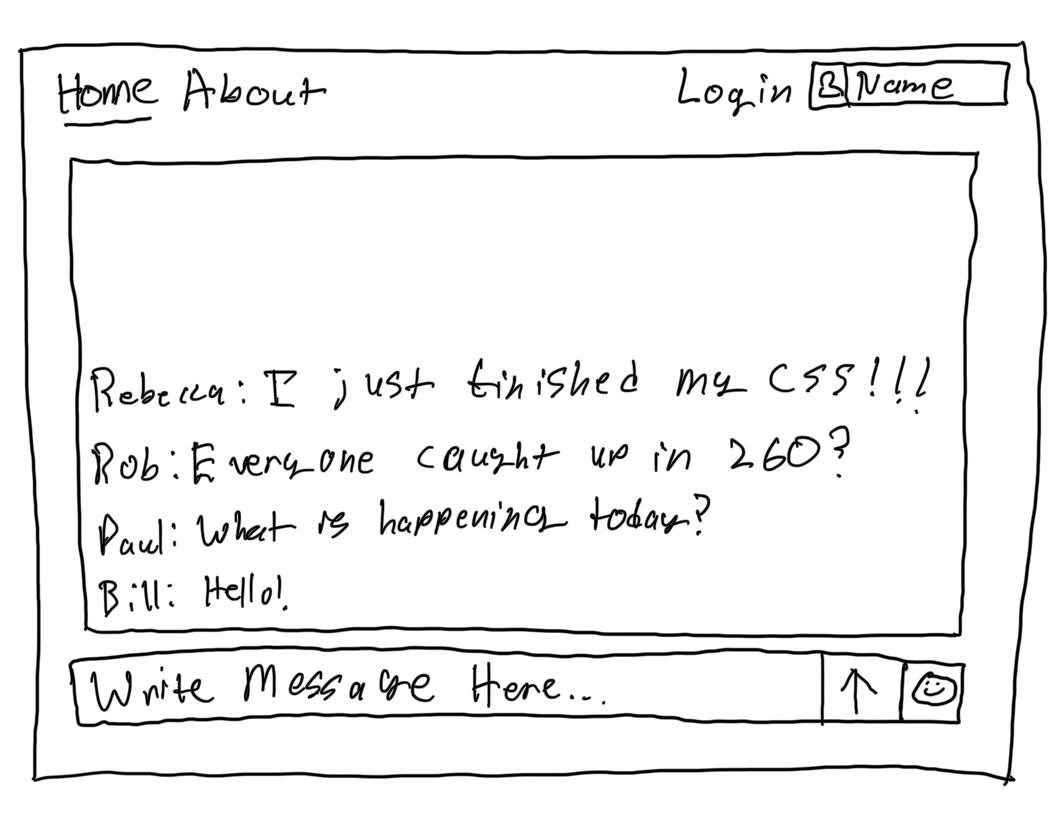 Home About Login B Name
Rebecca: I just finished my CSS!!!
Rob: Everyone caught up in 260?
Paul: What is happening today?
Bill: Hello!
Write Message Here...